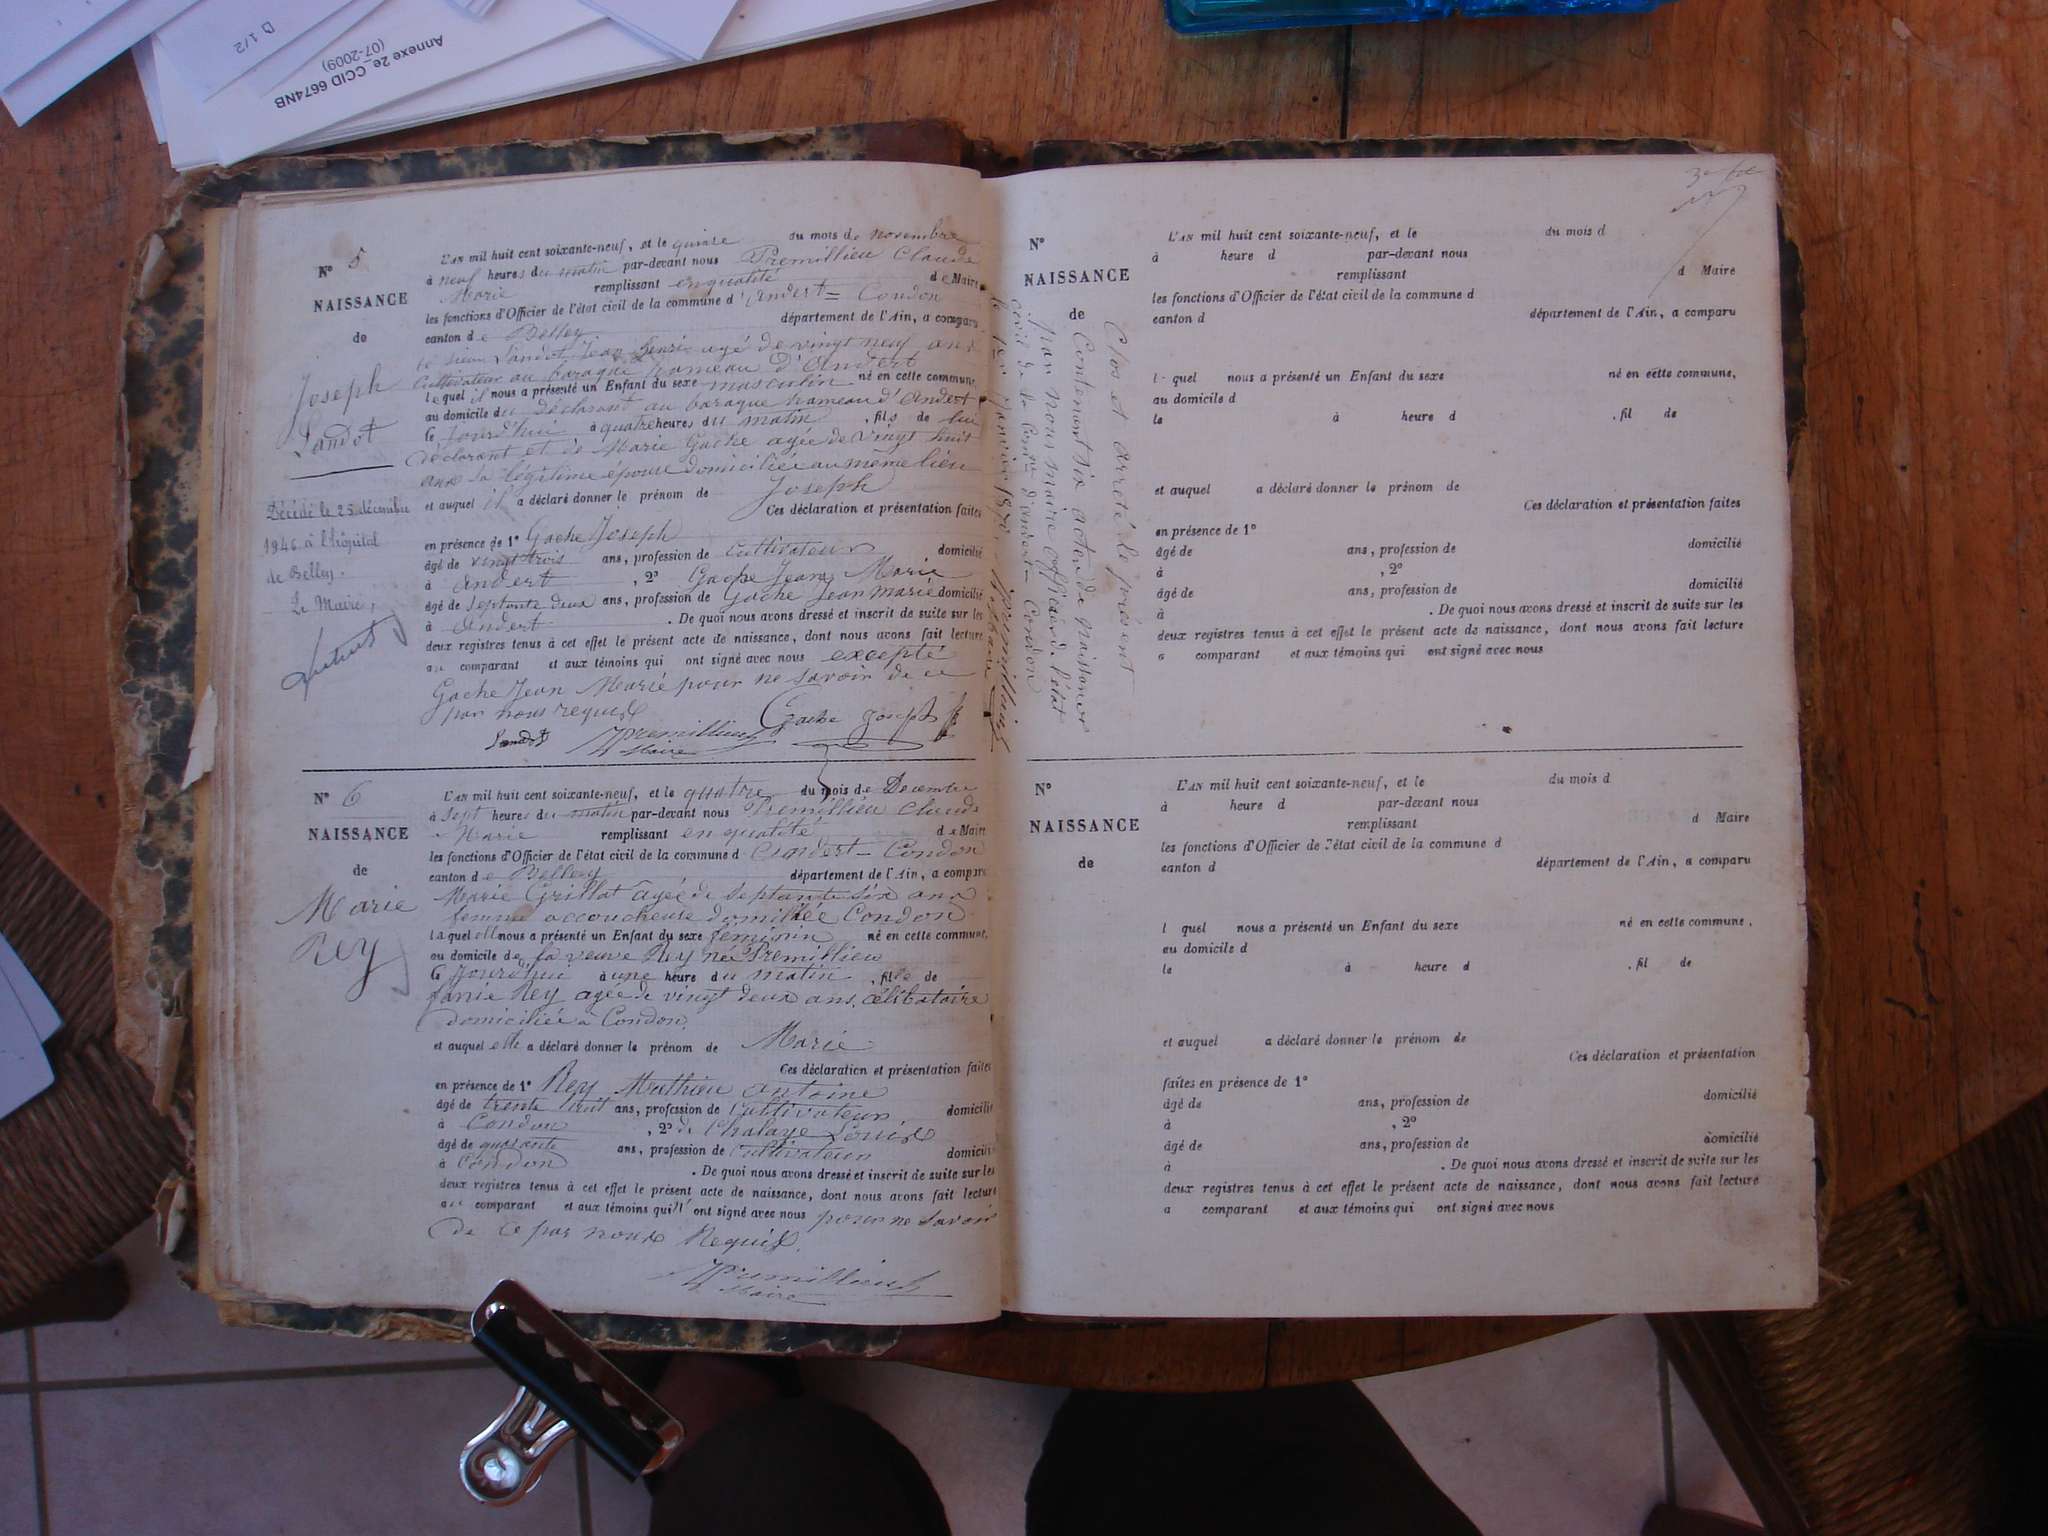 D 1/2
Annexe 2e_CCID 6674NB
(07-2009)
N° 5
NAISSANCE
de
Joseph
Landot
Décédé le 25 décembre
1946 à l'hôpital
de Belley.
Le Maire,
L'AN mil huit cent soixante-neuf, et le quinze du mois de novembre
à neuf heures du matin par-devant nous Premillieu Claude
Marie remplissant en qualité de Maire
les fonctions d'Officier de l'état civil de la commune d'Andert=Condon
canton de Belley département de l'Ain, a comparu
le sieur Landot Jean Henri agé de vingt neuf ans
Cultivateur au baraque hameau d'Andert
lequel il nous a présenté un Enfant du sexe masculin né en cette commune,
au domicile du Déclarant au baraque hameau d'Andert
le Jourd'hui à quatre heures du matin, fils de lui
déclarant et de Marie Gache agée de vingt huit
ans sa légitime épouse domiciliée au même lieu
et auquel il a déclaré donner le prénom de Joseph
Ces déclaration et présentation faites
en présence de 1° Gache Joseph
âgé de vingt trois ans, profession de Cultivateur domicilié
à Andert, 2° Gache Jean Marie
âgé de Septante deux ans, profession de Gache Jean Marie domicilié
à Andert. De quoi nous avons dressé et inscrit de suite sur les
deux registres tenus à cet effet le présent acte de naissance, dont nous avons fait lecture
au comparant et aux témoins qui ont signé avec nous excepté
Gache Jean Marie pour ne savoir de ce
par nous requis
Landot Premillieu Gache Joseph
Maire
N° 6
NAISSANCE
de
Marie
Rey
L'AN mil huit cent soixante-neuf, et le quatre du mois de Decembre
à Sept heures du matin par-devant nous Premillieu Claude
Marie remplissant en qualité de Maire
les fonctions d'Officier de l'état civil de la commune d Andert=Condon
canton de Belley département de l'Ain, a comparu
Marie Grillot agée de Septante Six ans
femme accoucheuse domiliée Condon
laquel elle nous a présenté un Enfant du sexe féminin né en cette commune,
au domicile de la veuve Rey née Premillieu
le Jourd'hui à une heure du matin, fille de
fanie Rey agée de vingt deux ans, célibataire
domiciliée à Condon.
et auquel elle a déclaré donner le prénom de Marie
Ces déclaration et présentation faites
en présence de 1° Rey Mathieu antoine
âgé de trente huit ans, profession de Cultivateur domicilié
à Condon, 2° de Chalaye Louis
âgé de quarante ans, profession de Cultivateur domicilié
à Condon. De quoi nous avons dressé et inscrit de suite sur les
deux registres tenus à cet effet le présent acte de naissance, dont nous avons fait lecture
au comparant et aux témoins qui n'ont signé avec nous pour ne savoir
de ce par nous Requis.
Premillieu
Maire
Clos et arrêté le présent
Contenant six actes de naissance
par nous maire officier de l'état
civil de la Comne d'andert=Condon
le 1er Janvier 1870. Premillieu
Maire
N°
NAISSANCE
de
L'AN mil huit cent soixante-neuf, et le du mois d
à heure d par-devant nous
remplissant d Maire
les fonctions d'Officier de l'état civil de la commune d
canton d département de l'Ain, a comparu
l quel nous a présenté un Enfant du sexe né en cette commune,
au domicile d
le à heure d , fil de
et auquel a déclaré donner le prénom de
Ces déclaration et présentation faites
en présence de 1°
âgé de ans, profession de domicilié
à , 2°
âgé de ans, profession de domicilié
à . De quoi nous avons dressé et inscrit de suite sur les
deux registres tenus à cet effet le présent acte de naissance, dont nous avons fait lecture
a comparant et aux témoins qui ont signé avec nous
N°
NAISSANCE
de
L'AN mil huit cent soixante-neuf, et le du mois d
à heure d par-devant nous
remplissant d Maire
les fonctions d'Officier de l'état civil de la commune d
canton d département de l'Ain, a comparu
l quel nous a présenté un Enfant du sexe né en cette commune,
au domicile d
le à heure d , fil de
et auquel a déclaré donner le prénom de
Ces déclaration et présentation
faites en présence de 1°
âgé de ans, profession de domicilié
à , 2°
âgé de ans, profession de domicilié
à . De quoi nous avons dressé et inscrit de suite sur les
deux registres tenus à cet effet le présent acte de naissance, dont nous avons fait lecture
a comparant et aux témoins qui ont signé avec nous